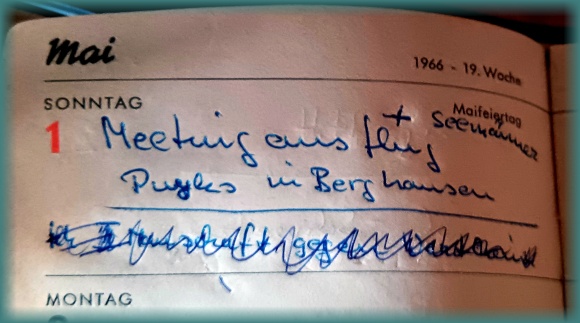 Mai
1966 - 19. Woche
SONNTAG
Maifeiertag
1 Meeting ausflug + Seemänner
in Berghausen
MONTAG